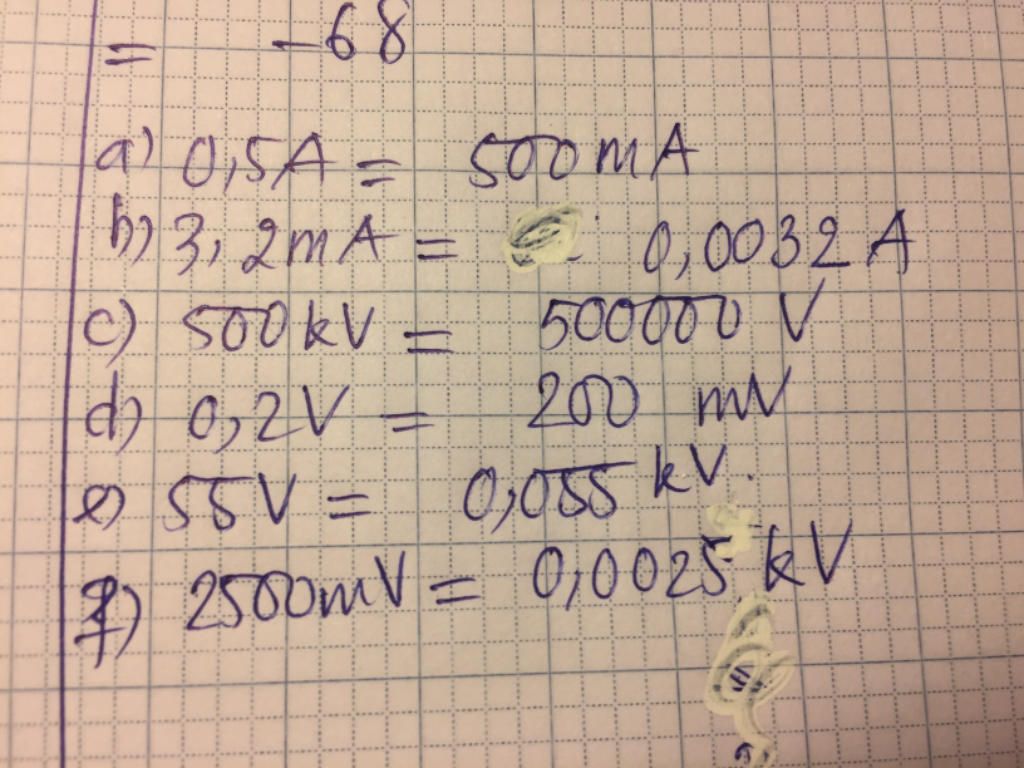 = -68
a) 0,5A = 500mA
b) 3,2mA = 0,0032 A
c) 500kV = 500000 V
d) 0,2V = 200 mV
e) 55V = 0,055 kV.
f) 2500mV = 0,0025 kV